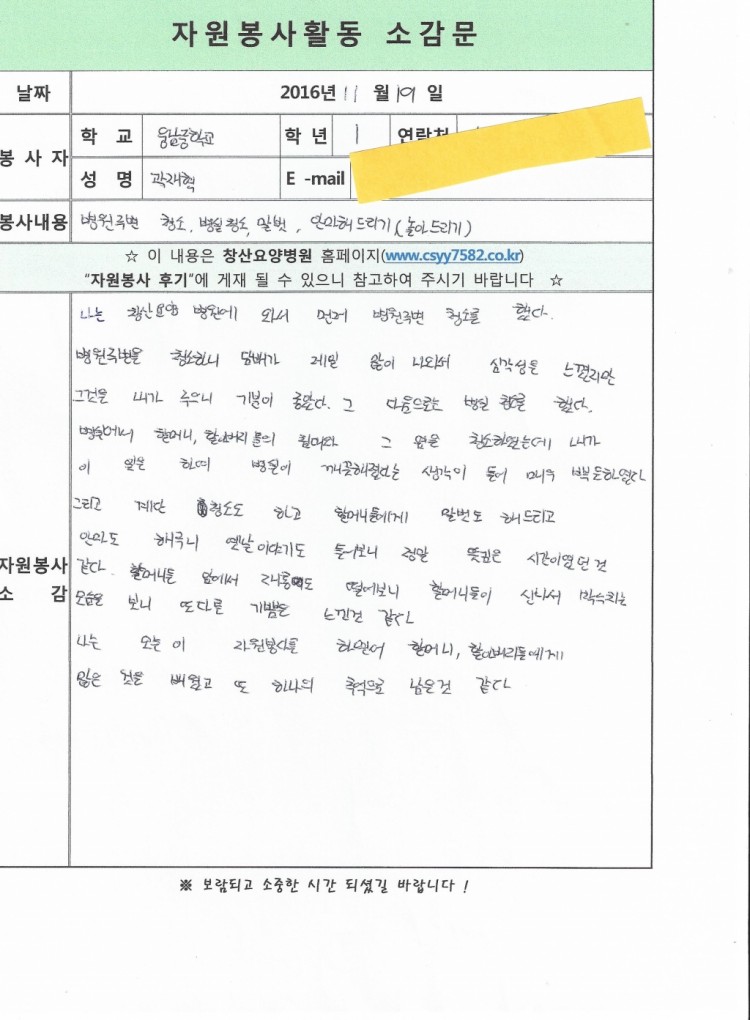 자원봉사활동 소감문
날짜
2016년 11 월 19 일
봉 사 자
학 교
웅남중학교
학 년
1
연락처
성 명
곽재혁
E -mail
봉사내용
병원주변 청소, 병실 청소, 말벗, 안마해 드리기 (놀아드리기)
☆ 이 내용은 창산요양병원 홈페이지(www.csyy7582.co.kr)
"자원봉사 후기"에 게재 될 수 있으니 참고하여 주시기 바랍니다 ☆
자원봉사
소 감
나는 창산요양 병원에 와서 먼저 병원주변 청소를 했다.
병원주변을 청소하니 담배가 제일 많이 나와서 심각성을 느꼈지만
그것을 내가 주으니 기분이 좋았다. 그 다음으로는 병실 청소를 했다.
병실에서 할머니, 할아버지 들의 그 옆을 청소하였는데 내가
이 일을 하여 병원이 깨끗해졌다는 생각이 들어 매우 뿌듯하였다
그리고 계단 청소도 하고 할머니들에게 말벗도 해드리고
안마도 해주니 옛날이야기도 들어보니 정말 뜻깊은 시간이였던것
같다. 할머니들 앞에서 재롱도 떨어보니 할머니들이 신나서 박수치는
모습을 보니 또다른 기쁨을 느낀것 같다
나는 오늘 이 자원봉사를 하면서 할머니, 할아버지들에게
많은 것을 배웠고 또 하나의 추억으로 남은것 같다
※ 보람되고 소중한 시간 되셨길 바랍니다 !